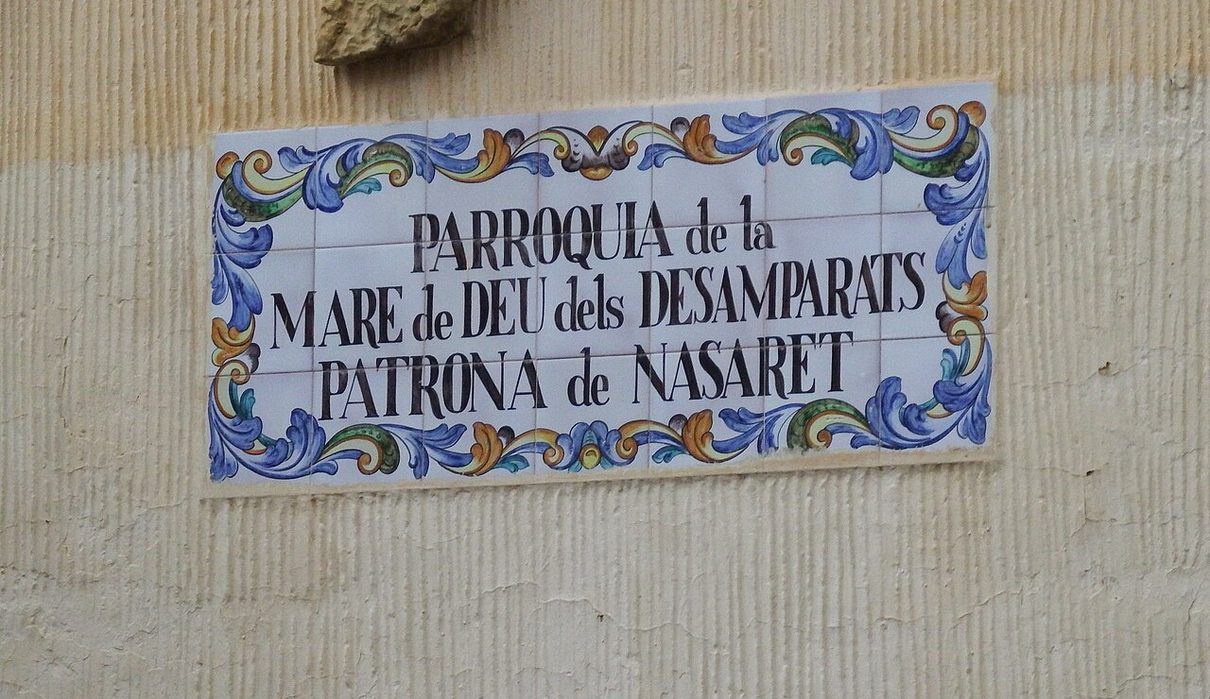 PARROQUIA de la
MARE de DEU dels DESAMPARATS
PATRONA de NASARET